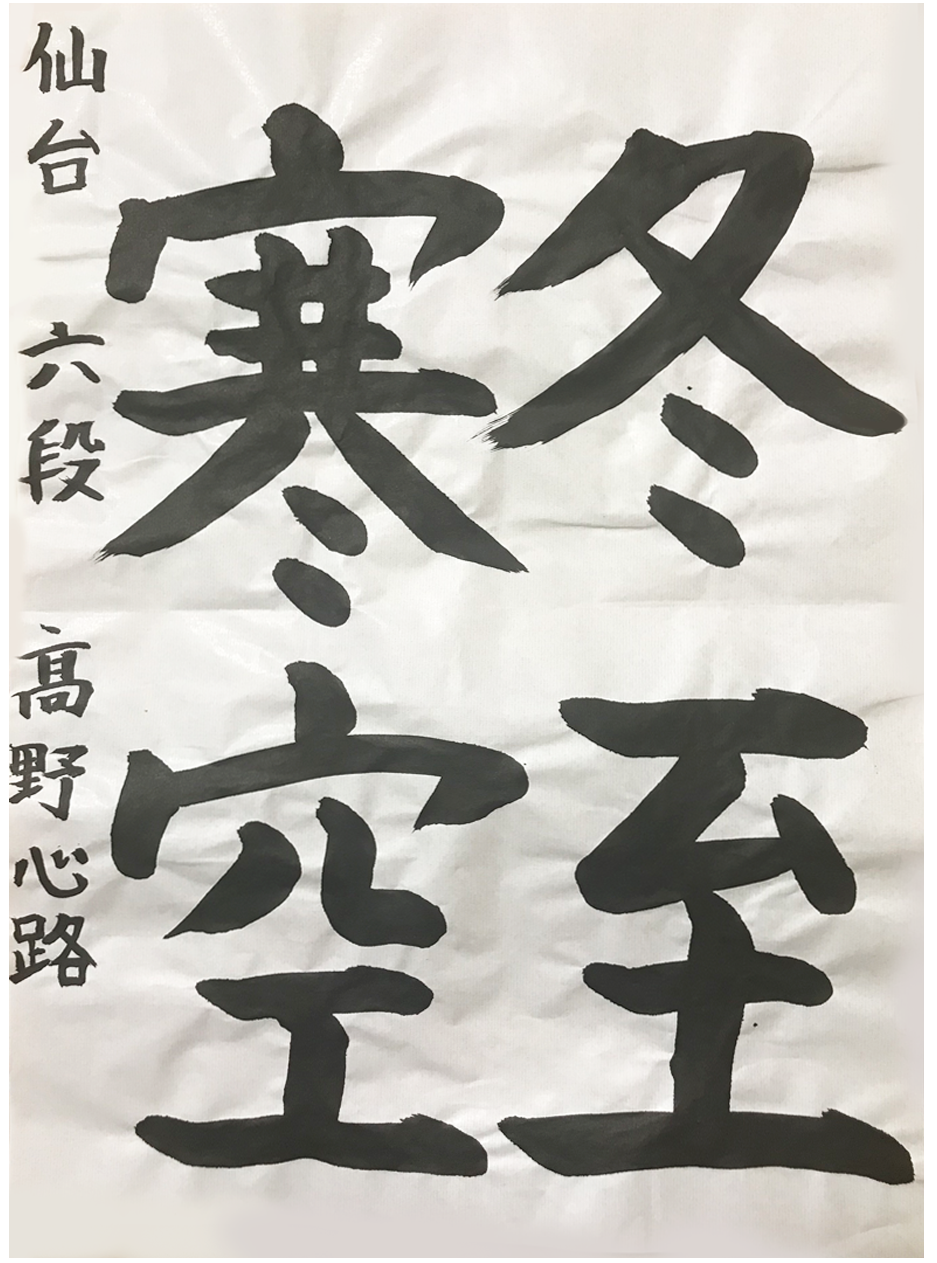 冬至
寒空
仙台 六段 髙野心路